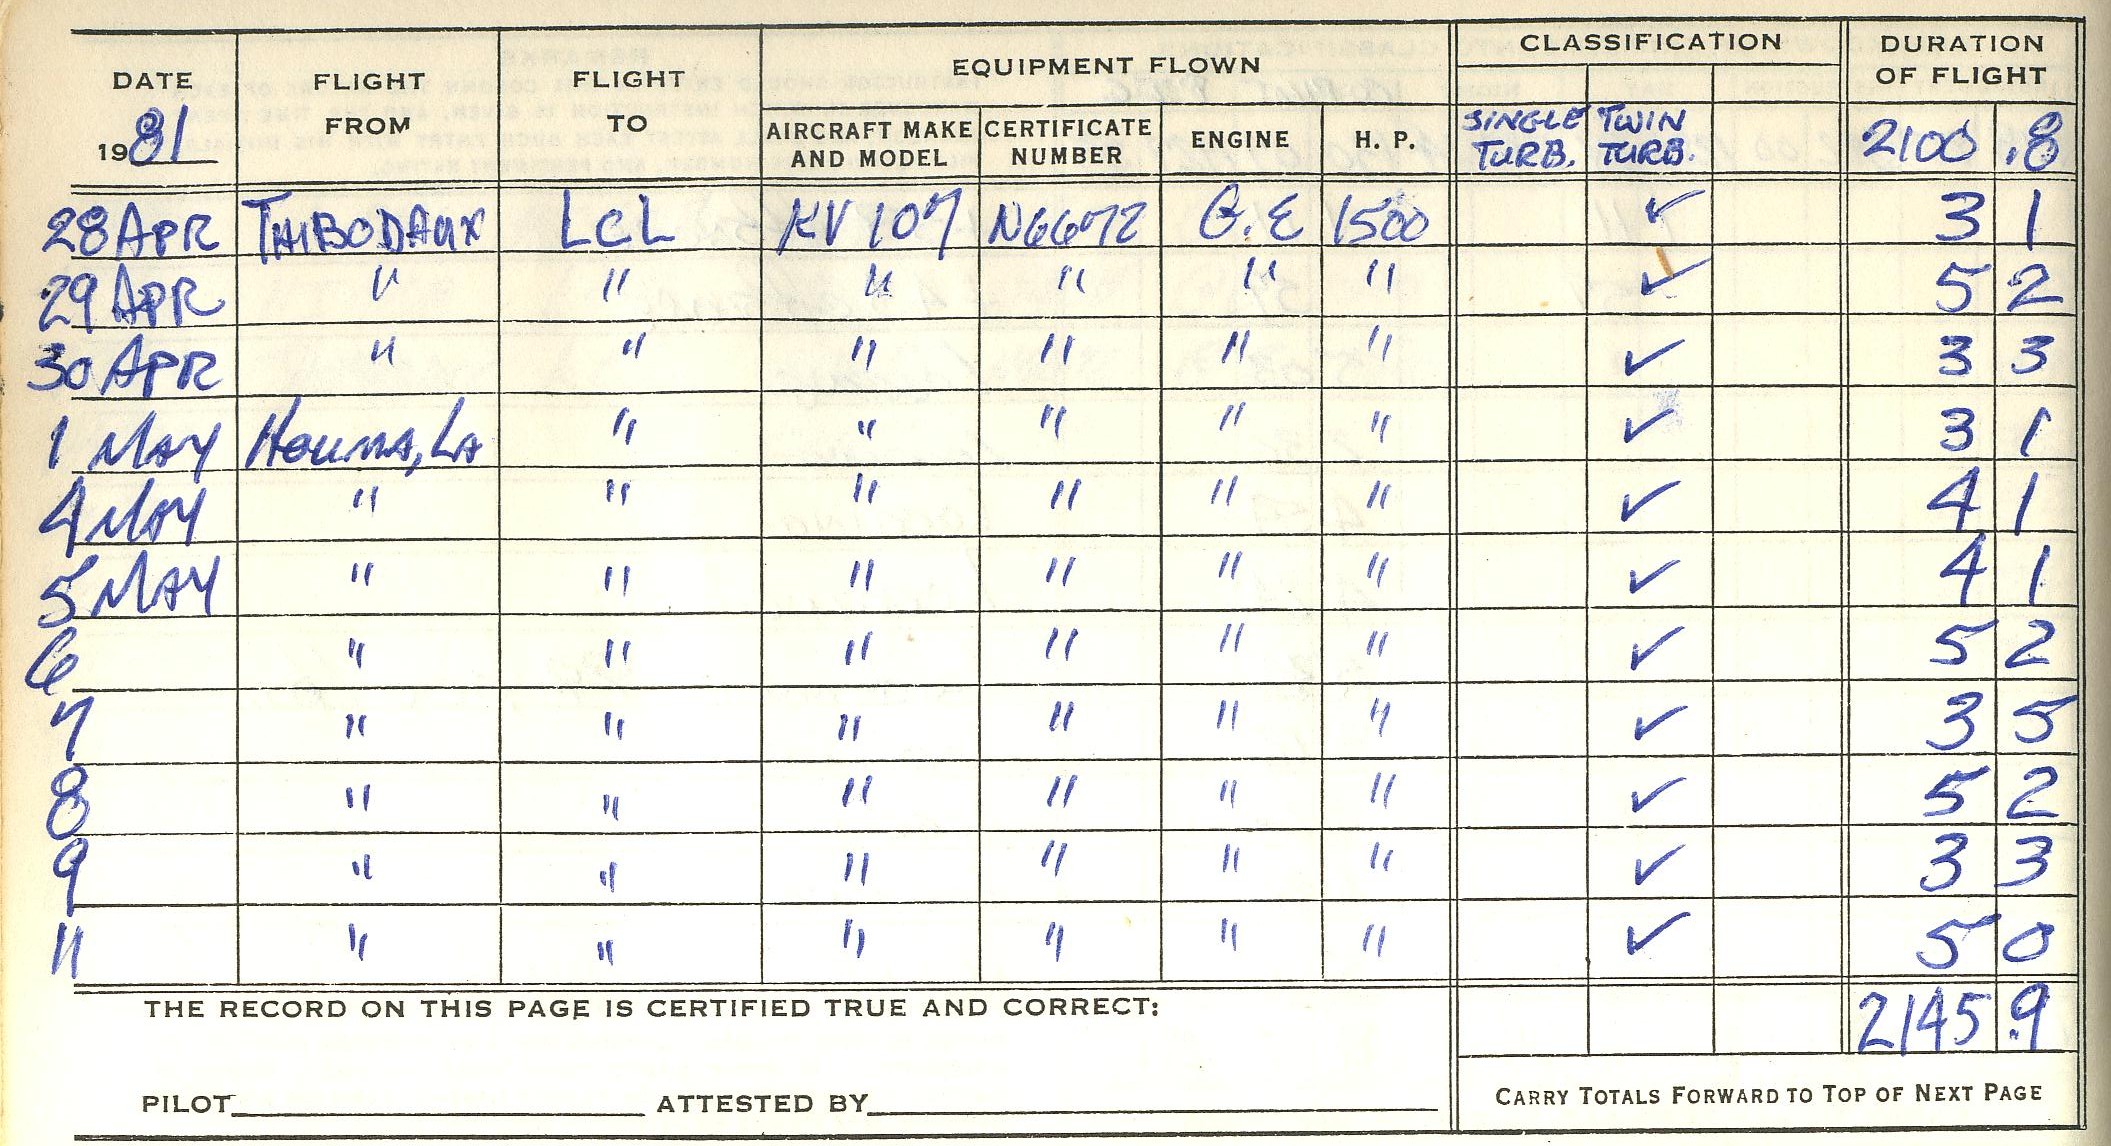 DATE 1981 FLIGHT FROM FLIGHT TO EQUIPMENT FLOWN CLASSIFICATION DURATION OF FLIGHT
AIRCRAFT MAKE AND MODEL CERTIFICATE NUMBER ENGINE H. P. SINGLE TURB. TWIN TURB. 2100 .8
28 APR THIBODAUX LCL KV 107 N6672 G.E 1500 ✓ 3 1
29 APR " " " " " " ✓ 5 2
30 APR " " " " " " ✓ 3 3
1 MAY HOUMA, LA " " " " " ✓ 3 1
4 MAY " " " " " " ✓ 4 1
5 MAY " " " " " " ✓ 4 1
6 " " " " " " ✓ 5 2
7 " " " " " " ✓ 3 5
8 " " " " " " ✓ 5 2
9 " " " " " " ✓ 3 3
11 " " " " " " ✓ 5 0
THE RECORD ON THIS PAGE IS CERTIFIED TRUE AND CORRECT: 2145 .9
PILOT ATTESTED BY CARRY TOTALS FORWARD TO TOP OF NEXT PAGE